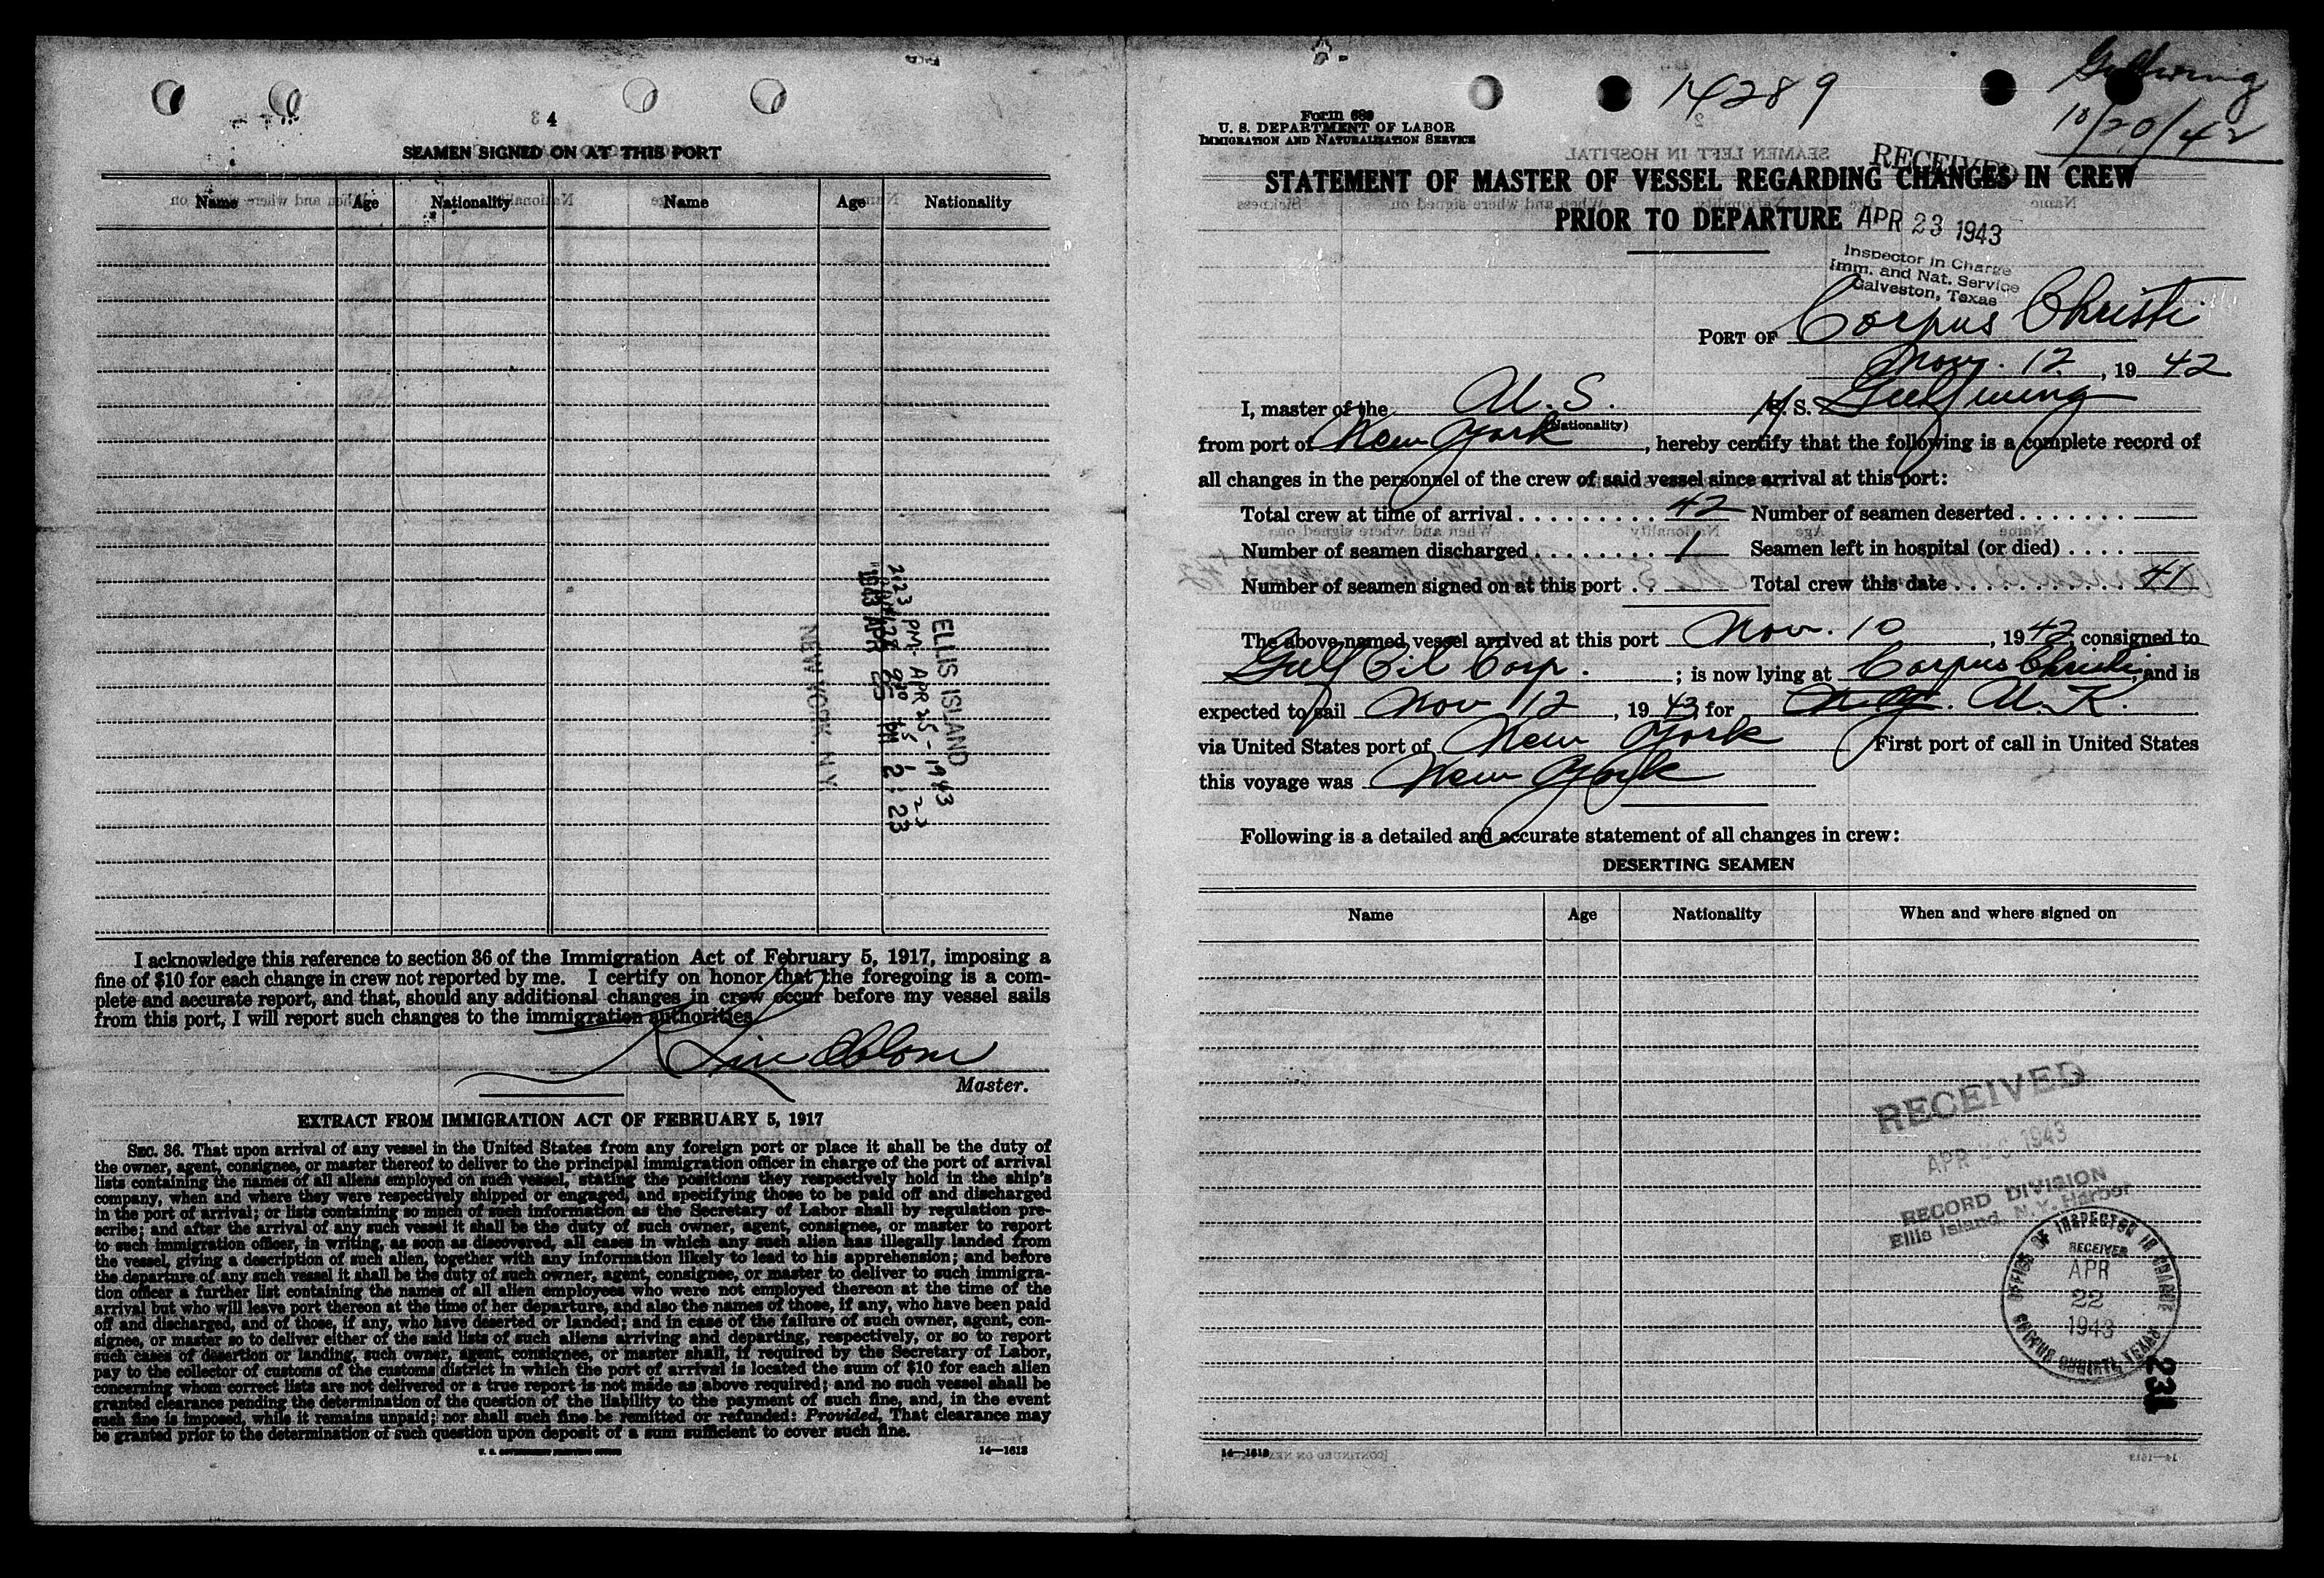 4
SEAMEN SIGNED ON AT THIS PORT
Name Age Nationality Name Age Nationality
ELLIS ISLAND
2:23 PM - APR 25 - 1943
1943 APR 25 PM 2:23
NEW YORK, N.Y.
I acknowledge this reference to section 36 of the Immigration Act of February 5, 1917, imposing a
fine of $10 for each change in crew not reported by me. I certify on honor that the foregoing is a com-
plete and accurate report, and that, should any additional changes in crew occur before my vessel sails
from this port, I will report such changes to the immigration authorities.
Lindblom
Master.
EXTRACT FROM IMMIGRATION ACT OF FEBRUARY 5, 1917
SEC. 36. That upon arrival of any vessel in the United States from any foreign port or place it shall be the duty of
the owner, agent, consignee, or master thereof to deliver to the principal immigration officer in charge of the port of arrival
lists containing the names of all aliens employed on such vessel, stating the positions they respectively hold in the ship's
company, when and where they were respectively shipped or engaged, and specifying those to be paid off and discharged
in the port of arrival; or lists containing so much of such information as the Secretary of Labor shall by regulation pre-
scribe; and after the arrival of any such vessel it shall be the duty of such owner, agent, consignee, or master to report
to such immigration officer, in writing, as soon as discovered, all cases in which any such alien has illegally landed from
the vessel, giving a description of such alien, together with any information likely to lead to his apprehension; and before
the departure of any such vessel it shall be the duty of such owner, agent, consignee, or master to deliver to such immigra-
tion officer a further list containing the names of all alien employees who were not employed thereon at the time of the
arrival but who will leave port thereon at the time of her departure, and also the names of those, if any, who have been paid
off and discharged, and of those, if any, who have deserted or landed; and in case of the failure of such owner, agent, con-
signee, or master so to deliver either of the said lists of such aliens arriving and departing, respectively, or so to report
such cases of desertion or landing, such owner, agent, consignee, or master shall, if required by the Secretary of Labor,
pay to the collector of customs of the customs district in which the port of arrival is located the sum of $10 for each alien
concerning whom correct lists are not delivered or a true report is not made as above required; and no such vessel shall be
granted clearance pending the determination of the question of the liability to the payment of such fine, and, in the event
such fine is imposed, while it remains unpaid; nor shall such fine be remitted or refunded: Provided, That clearance may
be granted prior to the determination of such question upon deposit of a sum sufficient to cover such fine.
U. S. GOVERNMENT PRINTING OFFICE 14—1613
14289
Gulfwing
10/20/42
Form 689
U. S. DEPARTMENT OF LABOR
IMMIGRATION AND NATURALIZATION SERVICE
RECEIVED
STATEMENT OF MASTER OF VESSEL REGARDING CHANGES IN CREW
PRIOR TO DEPARTURE
APR 23 1943
Inspector in Charge
Imm. and Nat. Service
Galveston, Texas
PORT OF Corpus Christi
Nov. 12, 19 42
I, master of the U. S. S. S. Gulfwing
(Nationality)
from port of New York, hereby certify that the following is a complete record of
all changes in the personnel of the crew of said vessel since arrival at this port:
Total crew at time of arrival 42 Number of seamen deserted
Number of seamen discharged 1 Seamen left in hospital (or died)
Number of seamen signed on at this port Total crew this date 41
The above-named vessel arrived at this port Nov. 10, 19 42, consigned to
Gulf Oil Corp.; is now lying at Corpus Christi, and is
expected to sail Nov 12, 19 43, for U. K.
via United States port of New York First port of call in United States
this voyage was New York
Following is a detailed and accurate statement of all changes in crew:
DESERTING SEAMEN
Name Age Nationality When and where signed on
RECEIVED
APR 1943
RECORD DIVISION
Ellis Island, N.Y. Harbor
OFFICE OF INSPECTOR IN CHARGE
RECEIVED
APR
22
1943
CORPUS CHRISTI, TEXAS
231
14—1613